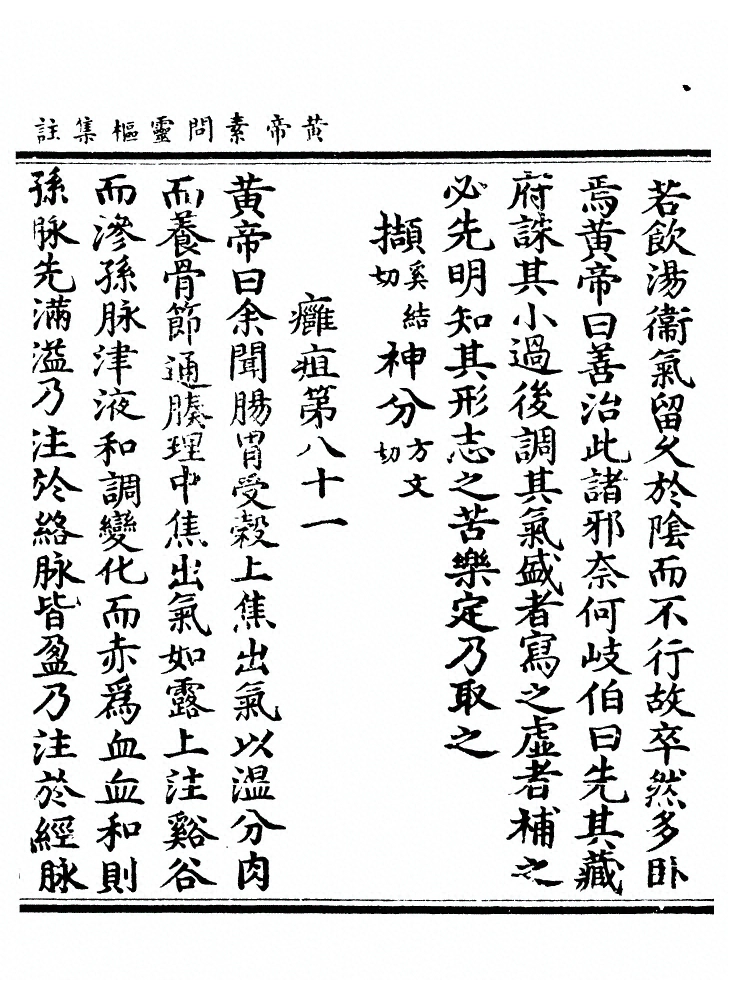 黃帝素問靈樞集註
若飲湯衞氣留久於陰而不行故卒然多卧
焉黃帝曰善治此諸邪奈何岐伯曰先其藏
府誅其小過後調其氣盛者寫之虛者補之
必先明知其形志之苦樂定乃取之
擷奚結切神分方文切
癰疽第八十一
黃帝曰余聞腸胃受穀上焦出氣以溫分肉
而養骨節通腠理中焦出氣如露上注谿谷
而滲孫脉津液和調變化而赤爲血血和則
孫脉先滿溢乃注於絡脉皆盈乃注於經脉